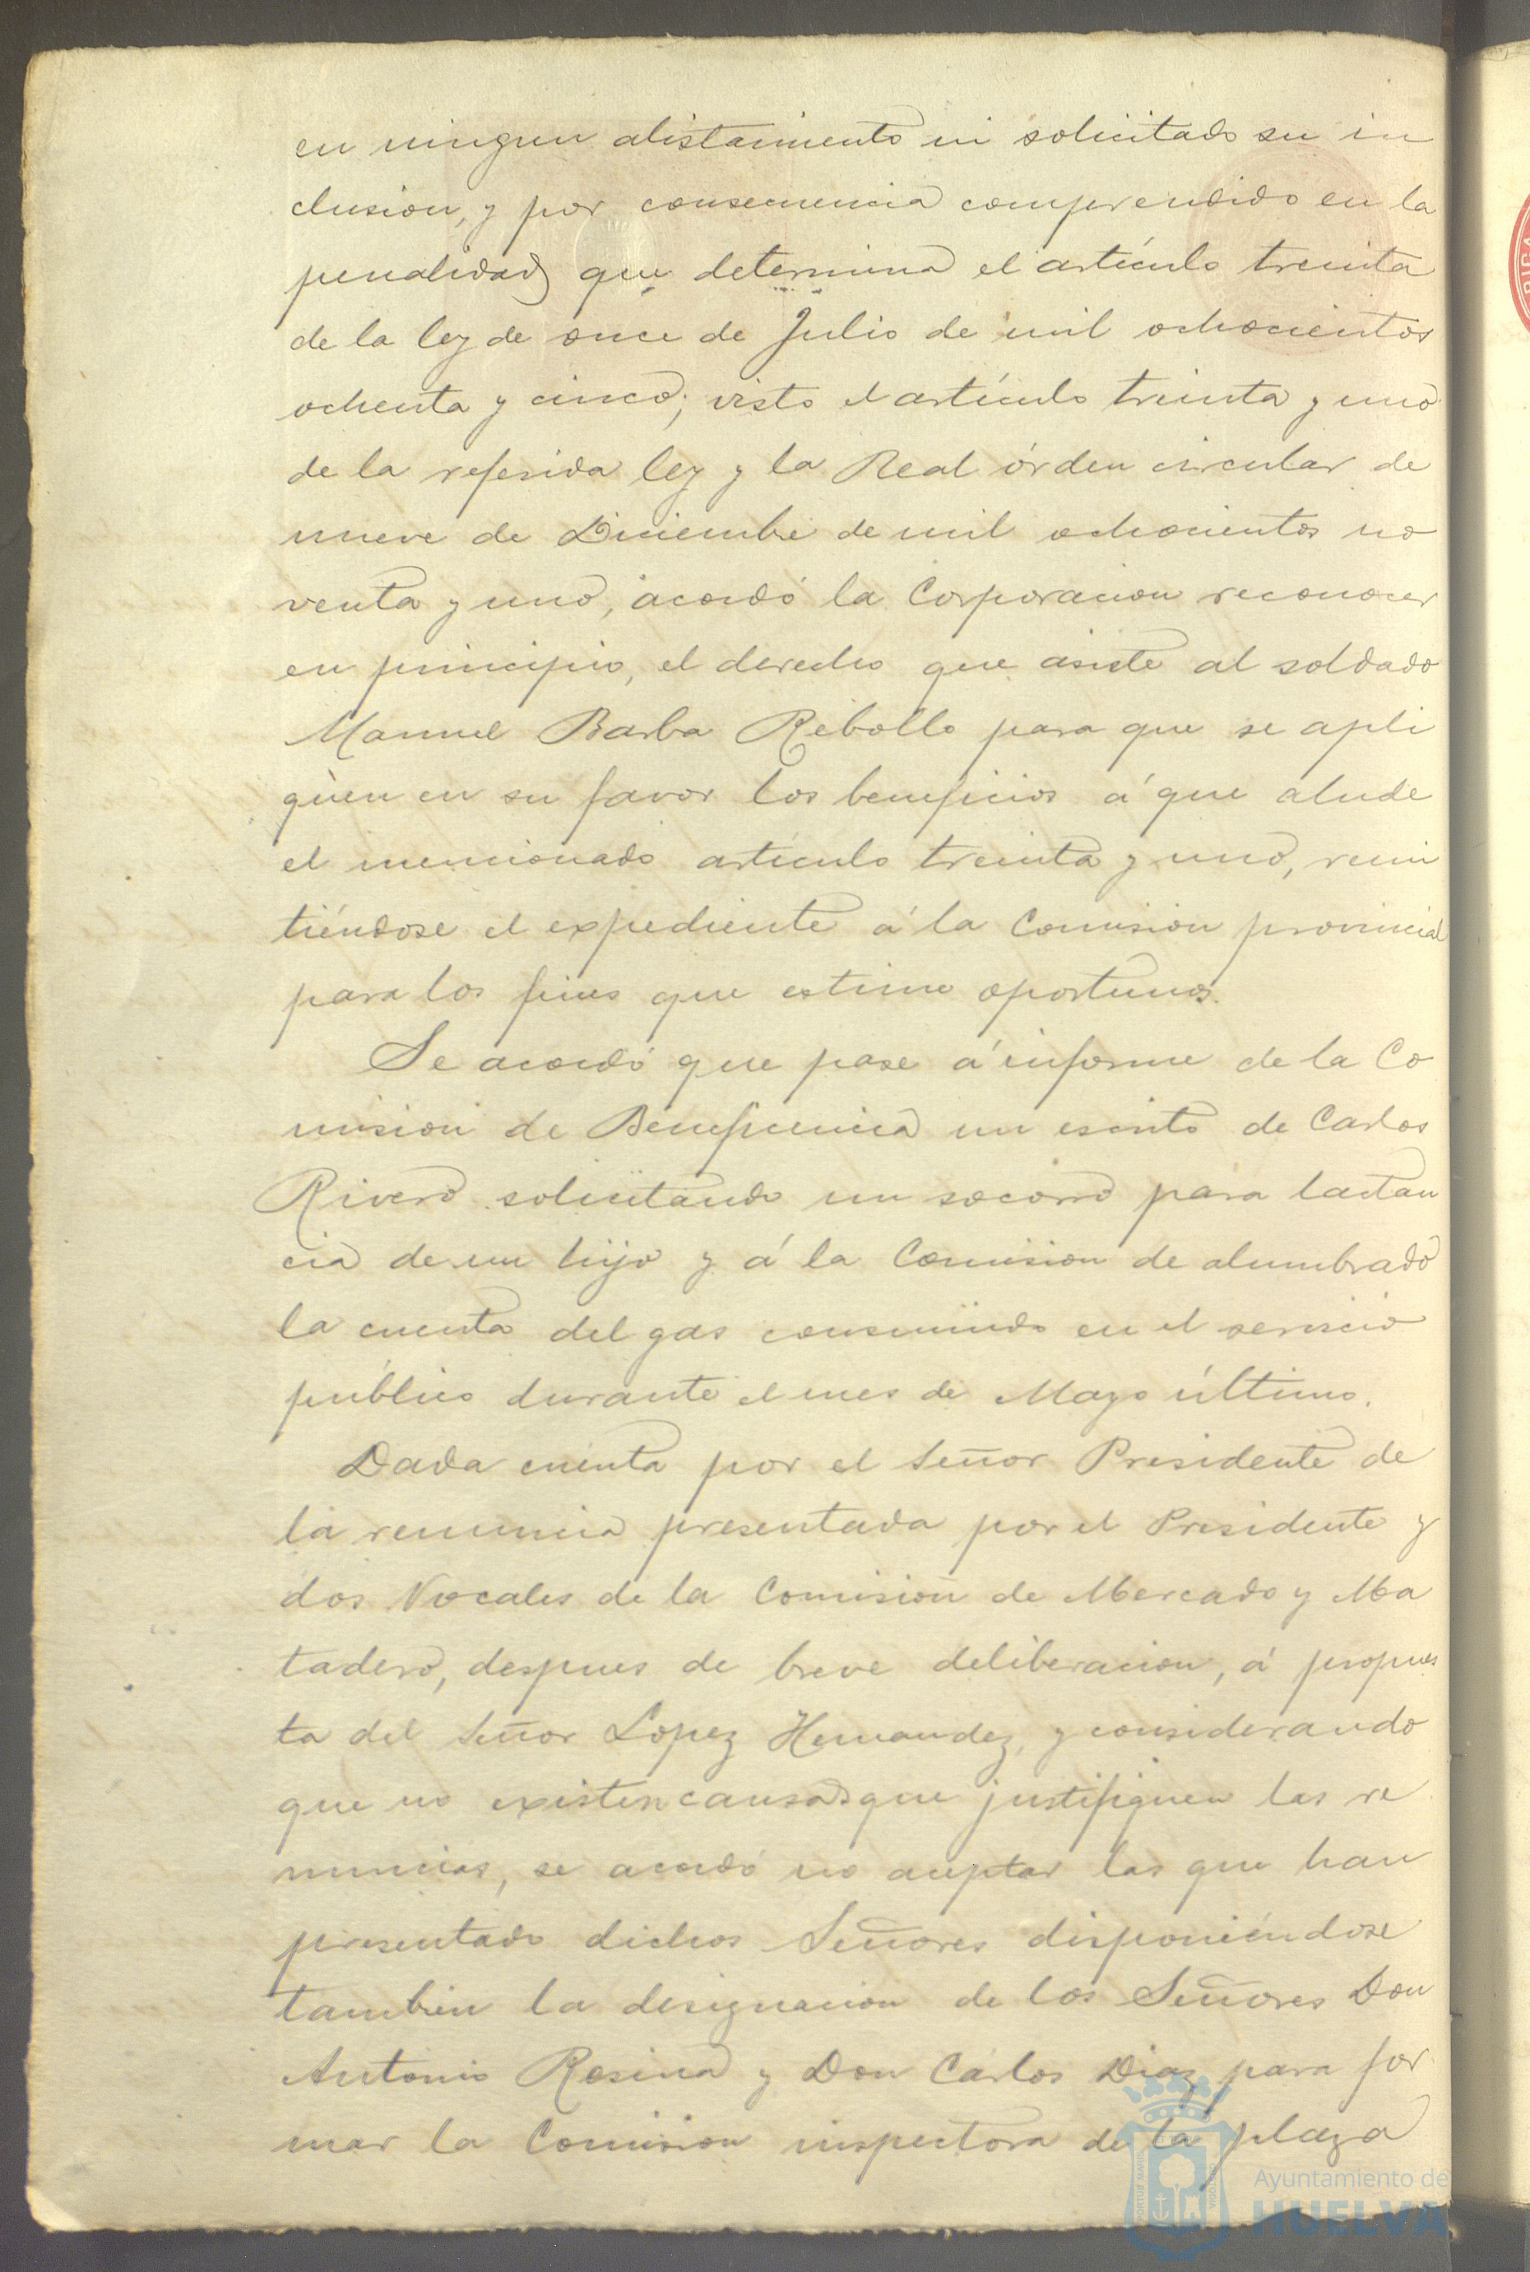 en ningun alistamiento ni solicitado su in
clusion, y por consecuencia comprendido en la
penalidad que determina el artículo treinta
de la ley de once de Julio de mil ochocientos
ochenta y cinco; visto el artículo treinta y uno
de la referida ley y la Real órden circular de
nueve de Diciembre de mil ochocientos no
venta y uno, acordó la Corporacion reconocer
en principio, el derecho que asiste al soldado
Manuel Barba Rebollo para que se apli
quen en su favor los beneficios á que alude
el mencionado artículo treinta y uno, remi
tiéndose el expediente á la Comision provincial
para los fines que estime oportunos.
Se acordó que pase á informe de la Co
mision de Beneficencia un escrito de Carlos
Rivero solicitando un socorro para lactan
cia de un hijo y á la Comision de alumbrado
la cuenta del gas consumido en el servicio
público durante el mes de Mayo último.
Dada cuenta por el Señor Presidente de
la renuncia presentada por el Presidente y
dos Vocales de la Comision de Mercado y Ma
tadero, despues de breve deliberacion, á propues
ta del Señor Lopez Hernandez, y considerando
que no existen causas que justifiquen las re
nuncias, se acordó no aceptar las que han
presentado dichos Señores disponiéndose
tambien la designacion de los Señores Don
Antonio Rosina y Don Carlos Diaz para for
mar la Comision inspectora de la plaza
Ayuntamiento de
HUELVA